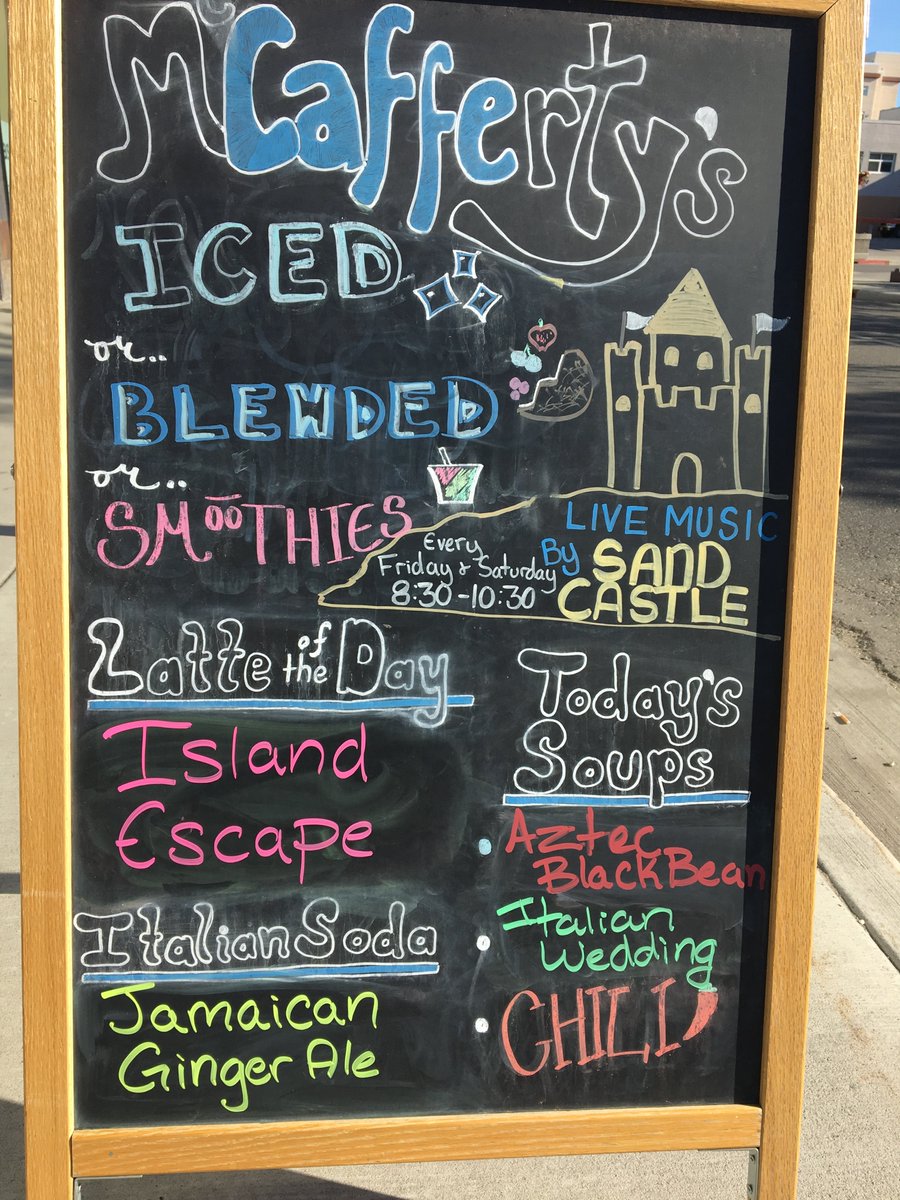 McCafferty's
ICED
or..
BLENDED
or..
SMOOTHIES
LIVE MUSIC
By SAND
CASTLE
Every
Friday & Saturday
8:30-10:30
Latte of the Day
Island
Escape
Italian Soda
Jamaican
Ginger Ale
Today's
Soups
• Aztec
Black Bean
• Italian
Wedding
• CHILI